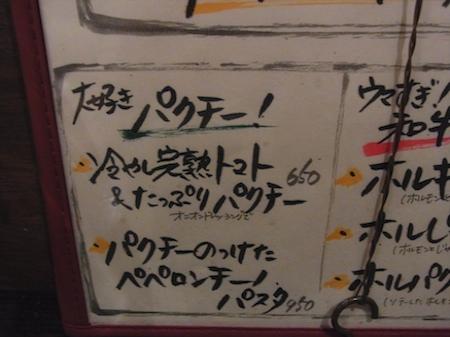 大好き パクチー!
冷やし完熟トマト
&たっぷりパクチー 650
オニオンドレッシングで
パクチーのっけた
ペペロンチーノ
パスタ 950
ウマすぎ!
和牛
ホルモ
ホルし
ホルパク